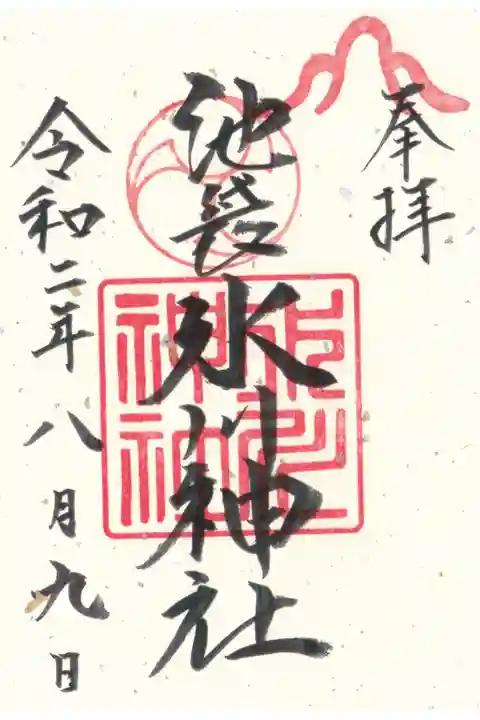 奉拝
池袋氷川神社
令和二年八月九日